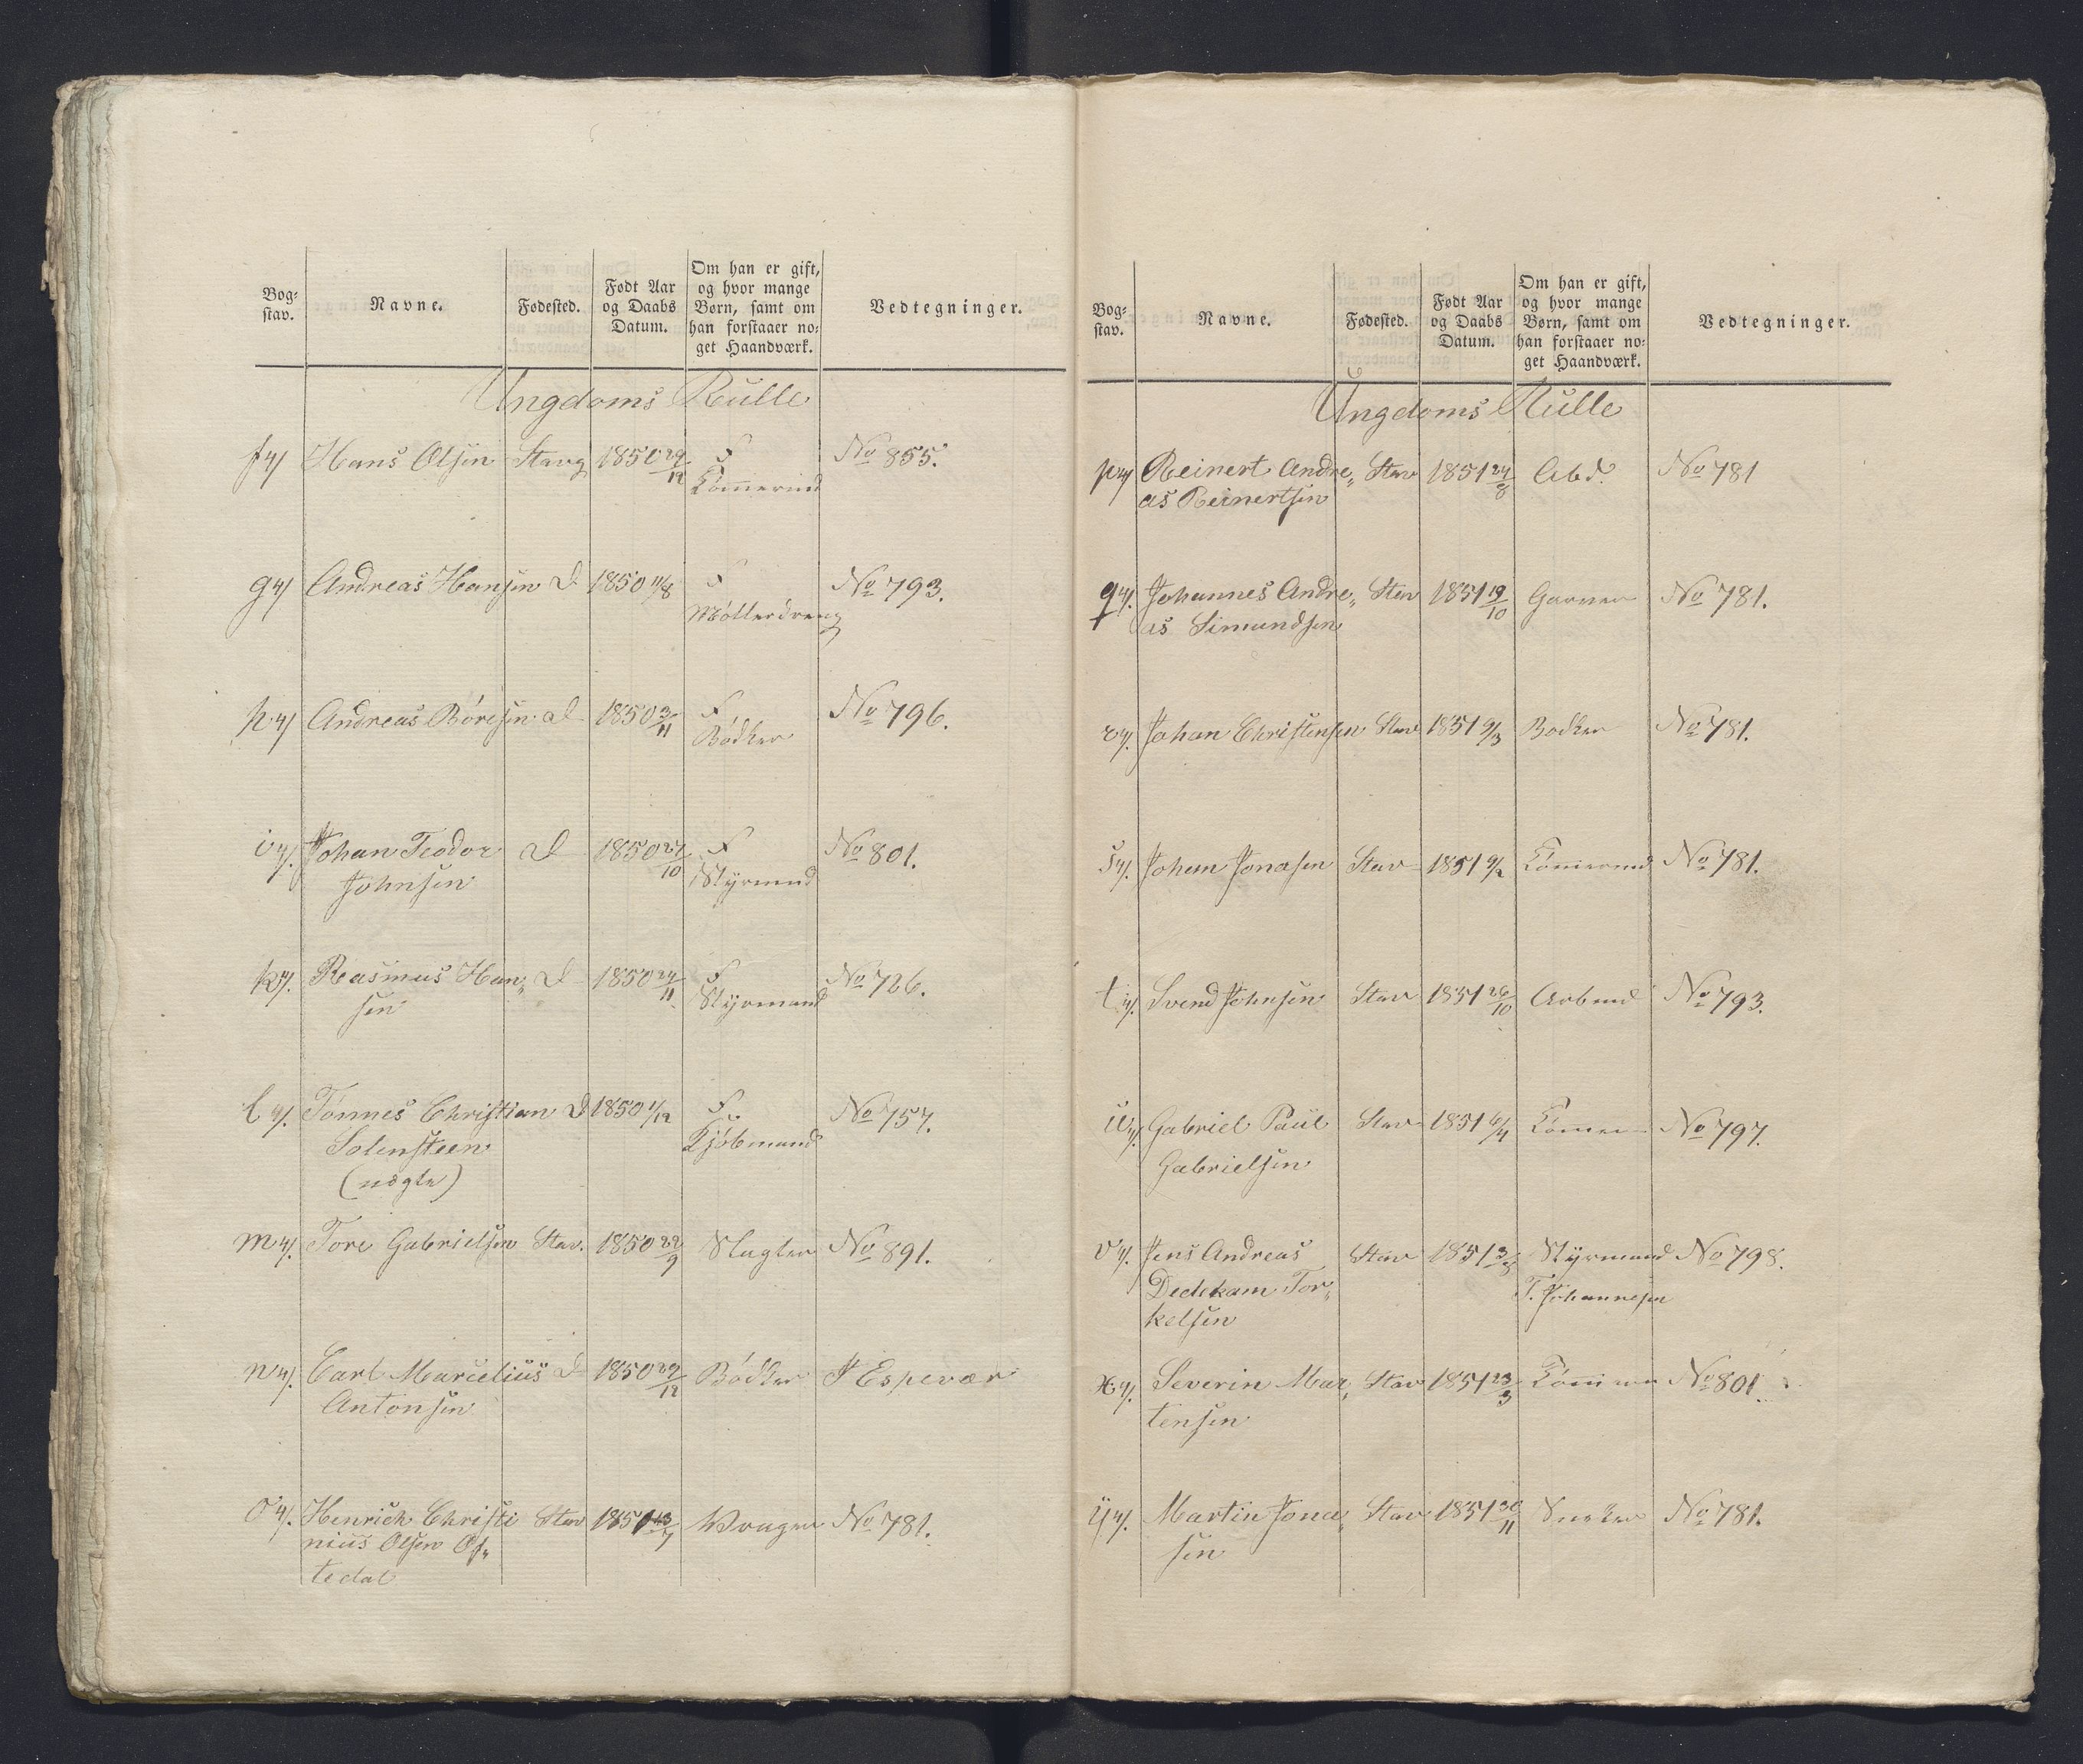 Bog-
stav.
Navne.
Fødested.
Født Aar
og Daabs
Datum.
Om han er gift,
og hvor mange
Børn, samt om
han forstaaer no-
get Haandværk.
Vedtegninger.
Ungdoms Rulle
f 4/ Hans Olsen Stavg 1850 29/12 F No 855.
Tømermd
g 4/ Andreas Hansen D 1850 11/8 F No 793.
Møllerdreng
h 4/ Andreas Børesen D 1850 3/11 F No 796.
Bødker
i 4/. Johan Teodor D 1850 27/10 F No 801.
Johnsen Styrmnd
k 4/. Rasmus Han„ D 1850 24/11 F No 726.
sen Styrmand
l 4/. Tønnes Christian D 1850 1/12 F No 757.
Solensteen Kjøbmand
(uægte)
m 4/. Tore Gabrielsen Stav. 1850 22/9 Slagter No 891.
n 4/. Carl Marcelius D 1850 29/12 Bødker I Espevær
Antonsen
o 4/. Henrich Christi Stav 1851 13/7 Vrager No 781.
nius Olsen Of„
tedal
Bog-
stav.
Navne.
Fødested.
Født Aar
og Daabs
Datum.
Om han er gift,
og hvor mange
Børn, samt om
han forstaaer no-
get Haandværk.
Vedtegninger.
Ungdoms Rulle
p 4/ Reinert Andre„ Stav 1851 24/8 Abd. No 781
as Reinertsen
q 4/. Johannes Andre„ Stav 1851 19/10 Garver No 781.
as Simundsen
r 4/. Johan Christensen Stav 1851 9/3 Bødker No 781.
s 4/. Johan Jonasen Stav 1851 9/2 Tømermd No 781.
t 4/. Svend Johnsen Stav 1851 26/10 Arbmd No 793.
u 4/. Gabriel Paul Stav 1851 6/4 Tømer No 797.
Gabrielsen
v 4/. Jens Andreas Stav 1851 Styrmand No 798.
Dedekam Tor„ T. Johannesen
kelsen
x 4/. Severin Mar„ Stav 1851 23/3 Tømmer No 801.
tensen
y 4/. Martin Jona„ Stav 1851 30/11 Sneker No 781.
sen